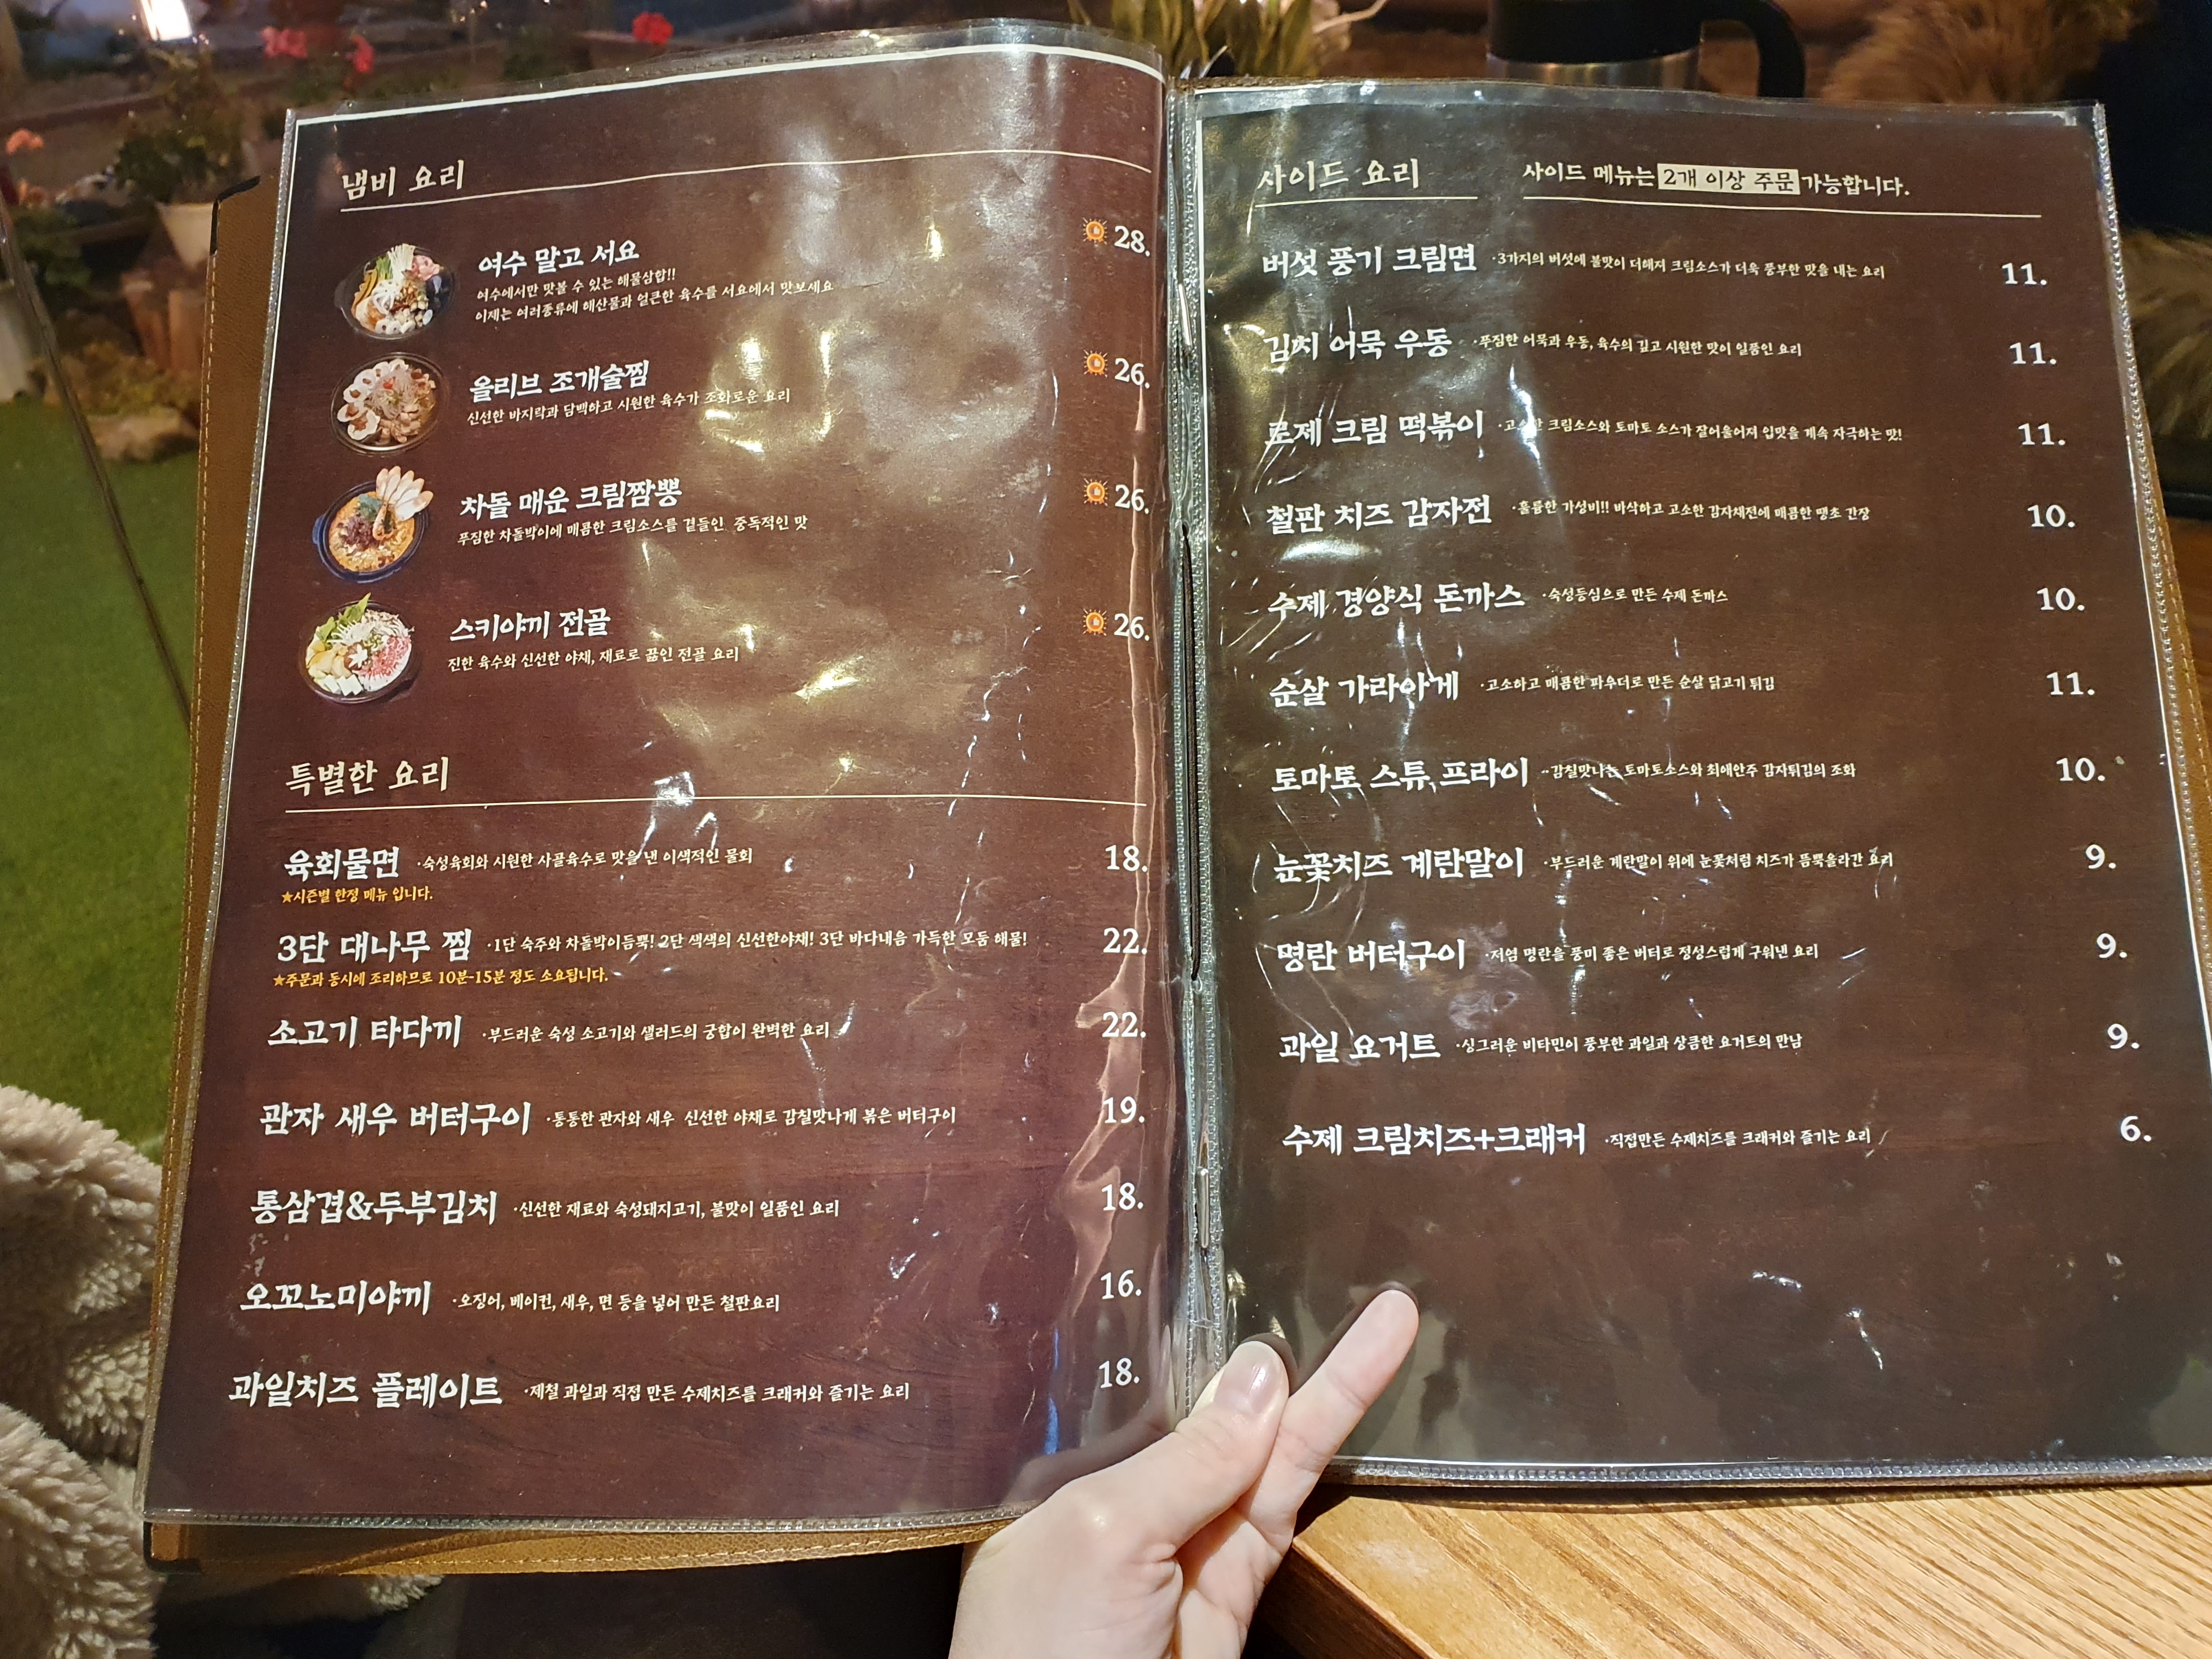 냄비 요리
여수 말고 서요 28.
여수에서만 맛볼 수 있는 해물삼합!!
이제는 여러종류에 해산물과 얼큰한 육수를 서요에서 맛보세요
올리브 조개술찜 26.
신선한 바지락과 담백하고 시원한 육수가 조화로운 요리
차돌 매운 크림짬뽕 26.
푸짐한 차돌박이에 매콤한 크림소스를 곁들인 중독적인 맛
스키야끼 전골 26.
진한 육수와 신선한 야채, 재료로 끓인 전골 요리
특별한 요리
육회물면 ·숙성육회와 시원한 사골육수로 맛을 낸 이색적인 물회 18.
★시즌별 한정 메뉴 입니다.
3단 대나무 찜 ·1단 숙주와 차돌박이듬뿍! 2단 색색의 신선한야채! 3단 바다내음 가득한 모둠 해물! 22.
★주문과 동시에 조리하므로 10분-15분 정도 소요됩니다.
소고기 타다끼 ·부드러운 숙성 소고기와 샐러드의 궁합이 완벽한 요리 22.
관자 새우 버터구이 ·통통한 관자와 새우 신선한 야채로 감칠맛나게 볶은 버터구이 19.
통삼겹&두부김치 ·신선한 재료와 숙성돼지고기, 불맛이 일품인 요리 18.
오꼬노미야끼 ·오징어, 베이컨, 새우, 면 등을 넣어 만든 철판요리 16.
과일치즈 플레이트 ·제철 과일과 직접 만든 수제치즈를 크래커와 즐기는 요리 18.
사이드 요리 사이드 메뉴는 2개 이상 주문 가능합니다.
버섯 풍기 크림면 ·3가지의 버섯에 불맛이 더해져 크림소스가 더욱 풍부한 맛을 내는 요리 11.
김치 어묵 우동 ·푸짐한 어묵과 우동, 육수의 깊고 시원한 맛이 일품인 요리 11.
로제 크림 떡볶이 ·고소한 크림소스와 토마토 소스가 잘어울어져 입맛을 계속 자극하는 맛! 11.
철판 치즈 감자전 ·훌륭한 가성비!! 바삭하고 고소한 감자채전에 매콤한 땡초 간장 10.
수제 경양식 돈까스 ·숙성등심으로 만든 수제 돈까스 10.
순살 가라아게 ·고소하고 매콤한 파우더로 만든 순살 닭고기 튀김 11.
토마토 스튜 프라이 ·감칠맛나는 토마토소스와 최애안주 감자튀김의 조화 10.
눈꽃치즈 계란말이 ·부드러운 계란말이 위에 눈꽃처럼 치즈가 듬뿍올라간 요리 9.
명란 버터구이 ·저염 명란을 풍미 좋은 버터로 정성스럽게 구워낸 요리 9.
과일 요거트 ·싱그러운 비타민이 풍부한 과일과 상큼한 요거트의 만남 9.
수제 크림치즈+크래커 ·직접만든 수제치즈를 크래커와 즐기는 요리 6.